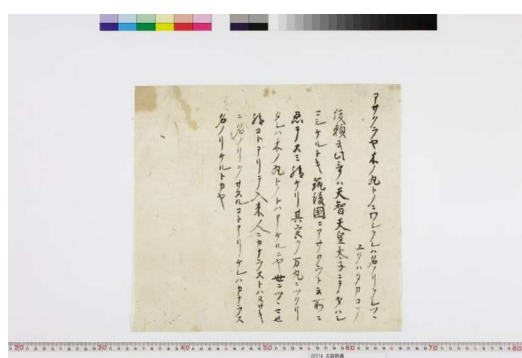 アサクラヤ木ノ丸トノニワレヲレハ名ノリヲシツヽ
ユクハタカコソ
俊頼云此哥ハ天智天皇太子ニテヲハシ
ニシケルトキ筑後國ニアサクラト云所ニ
忍テスミ給ケリ其家ヲ万丸ニツクリ
タレハ木ノ丸トノトハ ケルニヤ世ニツヽ
給コトアリテ入来人ニカナラストハヌサキ
ニ名ノリ コトアリケレハカナラス
名ノリケルトカヤ